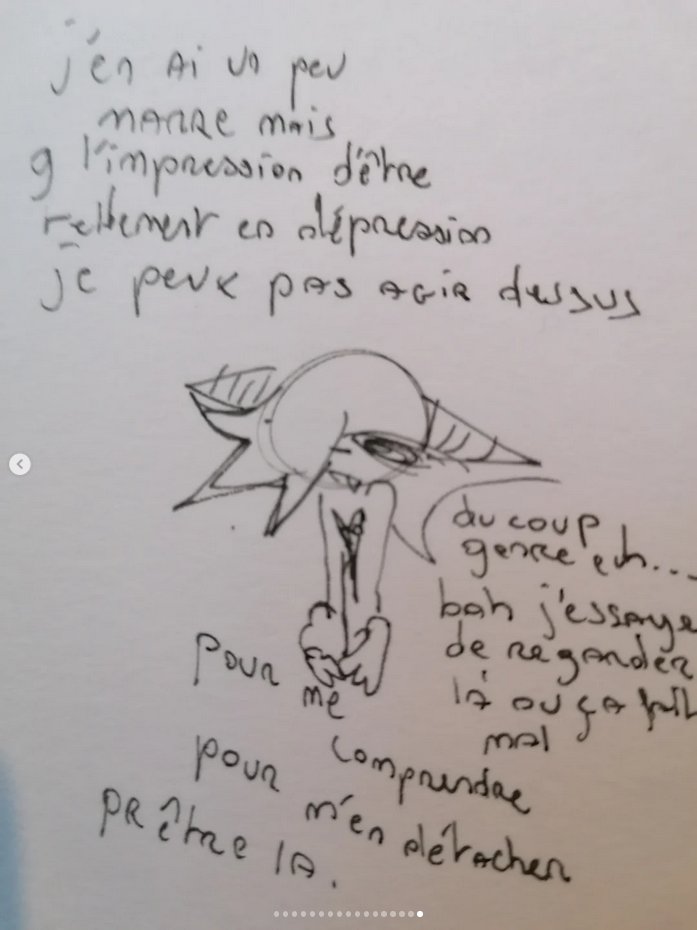 j'en ai un peu
marre mais
g l'impression d'être
tellement en dépression
je peux pas agir dessus
du coup
genre euh...
bah j'essaye
de regarder
là ou ça fait
mal
pour
me
comprendre
pour
m'en détacher
pr être là.